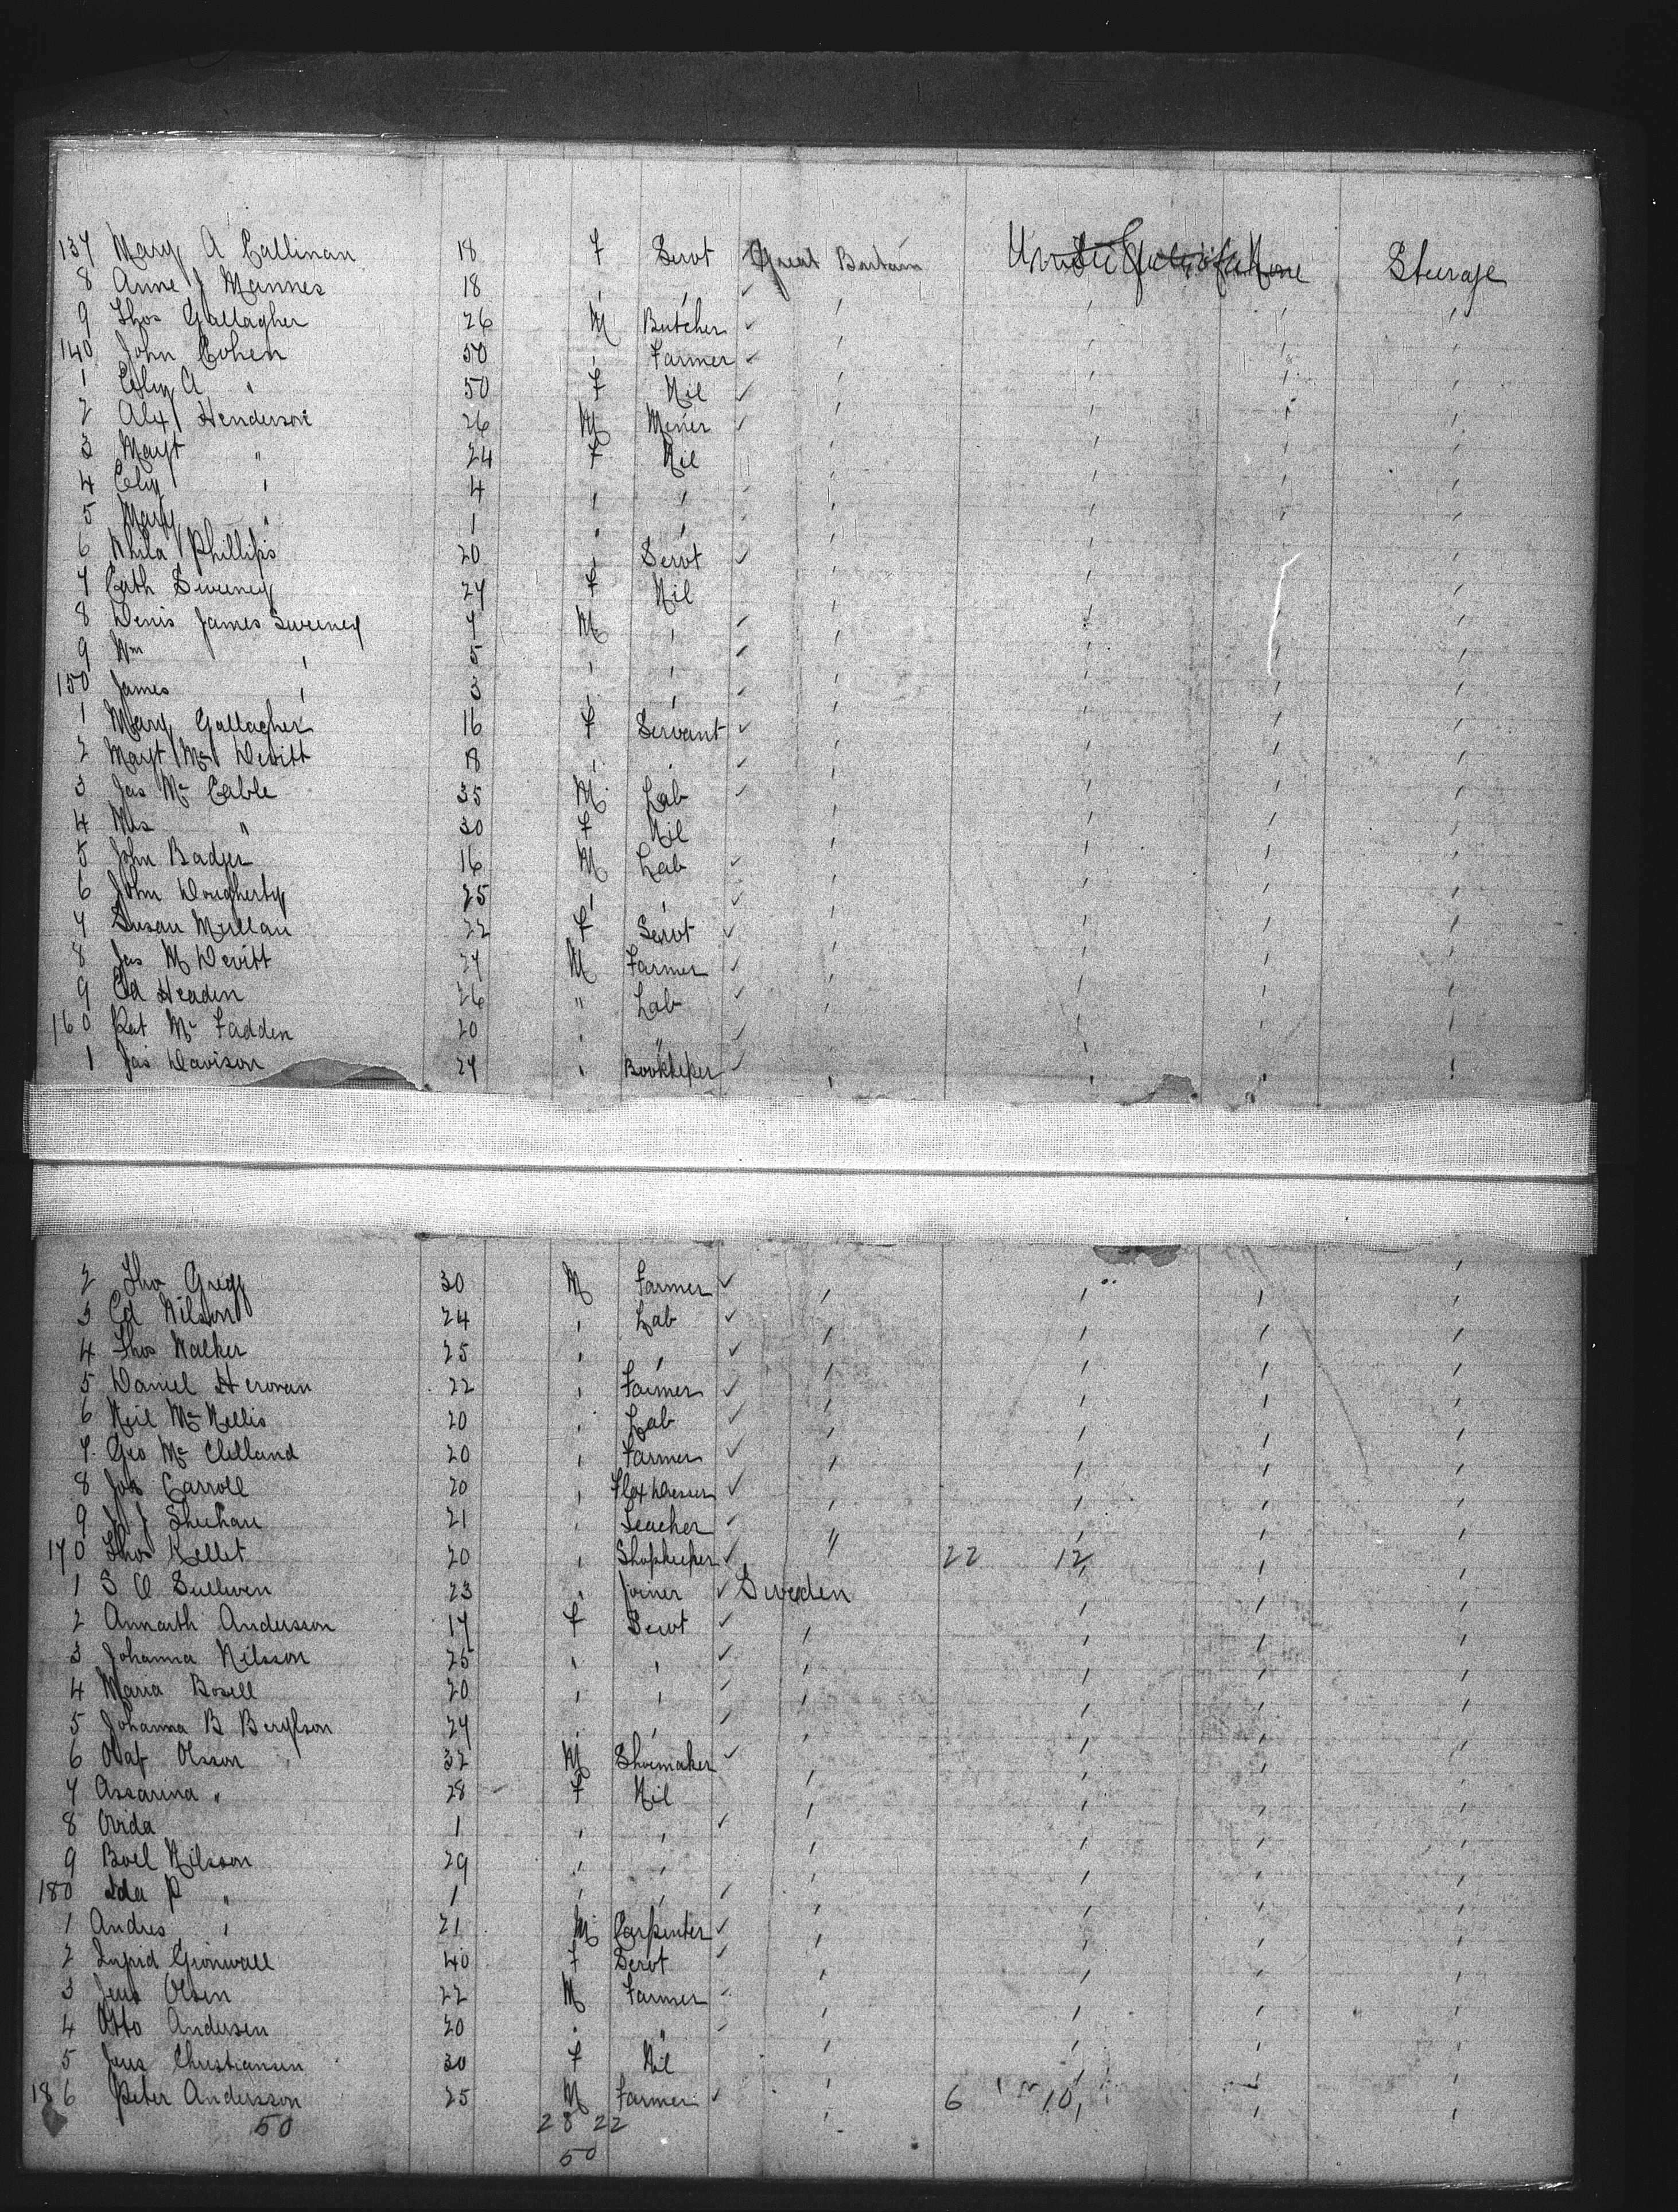 137 Mary A Callinan 18 F Servt Great Britain United States of A None Steerage
8 Anne J Mannes 18 " "
9 Thos Gallagher 26 M Butcher
140 John Cohen 50 " Farmer
1 " 50 F Nil
2 Alex Henderson 26 M Miner
3 Magt " 24 F Nil
4 Eliz " 4 " "
5 Mary " 1 " "
6 Phillips 20 " Servt
7 Cath Sweeney 27 F Nil
8 Denis James Sweeney 7 M "
9 Wm " 5 " "
150 James " 3 " "
1 Mary Gallagher 16 F Servant
2 Magt Mc Devitt 18 " "
3 Jas Mc Cable 35 M Lab
4 Mrs " 30 F Nil
5 John Badger 16 M Lab
6 John Dougherty 25 " "
7 Susan Mullan 22 F Servt
8 Jas Mc Devitt 27 M Farmer
9 Ed Headen 26 " Lab
160 Pat Mc Fadden 20 " "
1 Jas Davison 27 " Bookkeper
2 Tho Gregg 30 M Farmer
3 Ed Wilson 24 " Lab
4 Thos Walker 25 " "
5 Daniel Heronan 22 " Farmer
6 Neil Mc Nellis 20 " Lab
7 Geo Mc Clelland 20 " Farmer
8 Jos Carroll 20 " Flax Dresser
9 J J Sheehan 21 " Teacher "
170 Thos Kellet 20 " Shopkeeper 22 12
1 S O Sullivan 23 " Joiner Sweden
2 Annath Andersson 17 F Servt
3 Johanna Nilsson 25 " "
4 Maria Bosell 20 " "
5 Johanna B Berglson 27 " "
6 Olaf Olsson 32 M Shoemaker
7 Assarina " 28 F Nil
8 Arida 1 " "
9 Boel Nilsson 29 " "
180 Ida P " 1 " "
1 Andres " 21 M Carpenter
2 Ingrid Gronwall 40 F Servt
3 Jens Olsen 22 M Farmer
4 Otto Andersen 20 " "
5 Jens Christiansen 30 F Nil
186 Peter Andersson 25 M Farmer 6 10
50 28 22
50